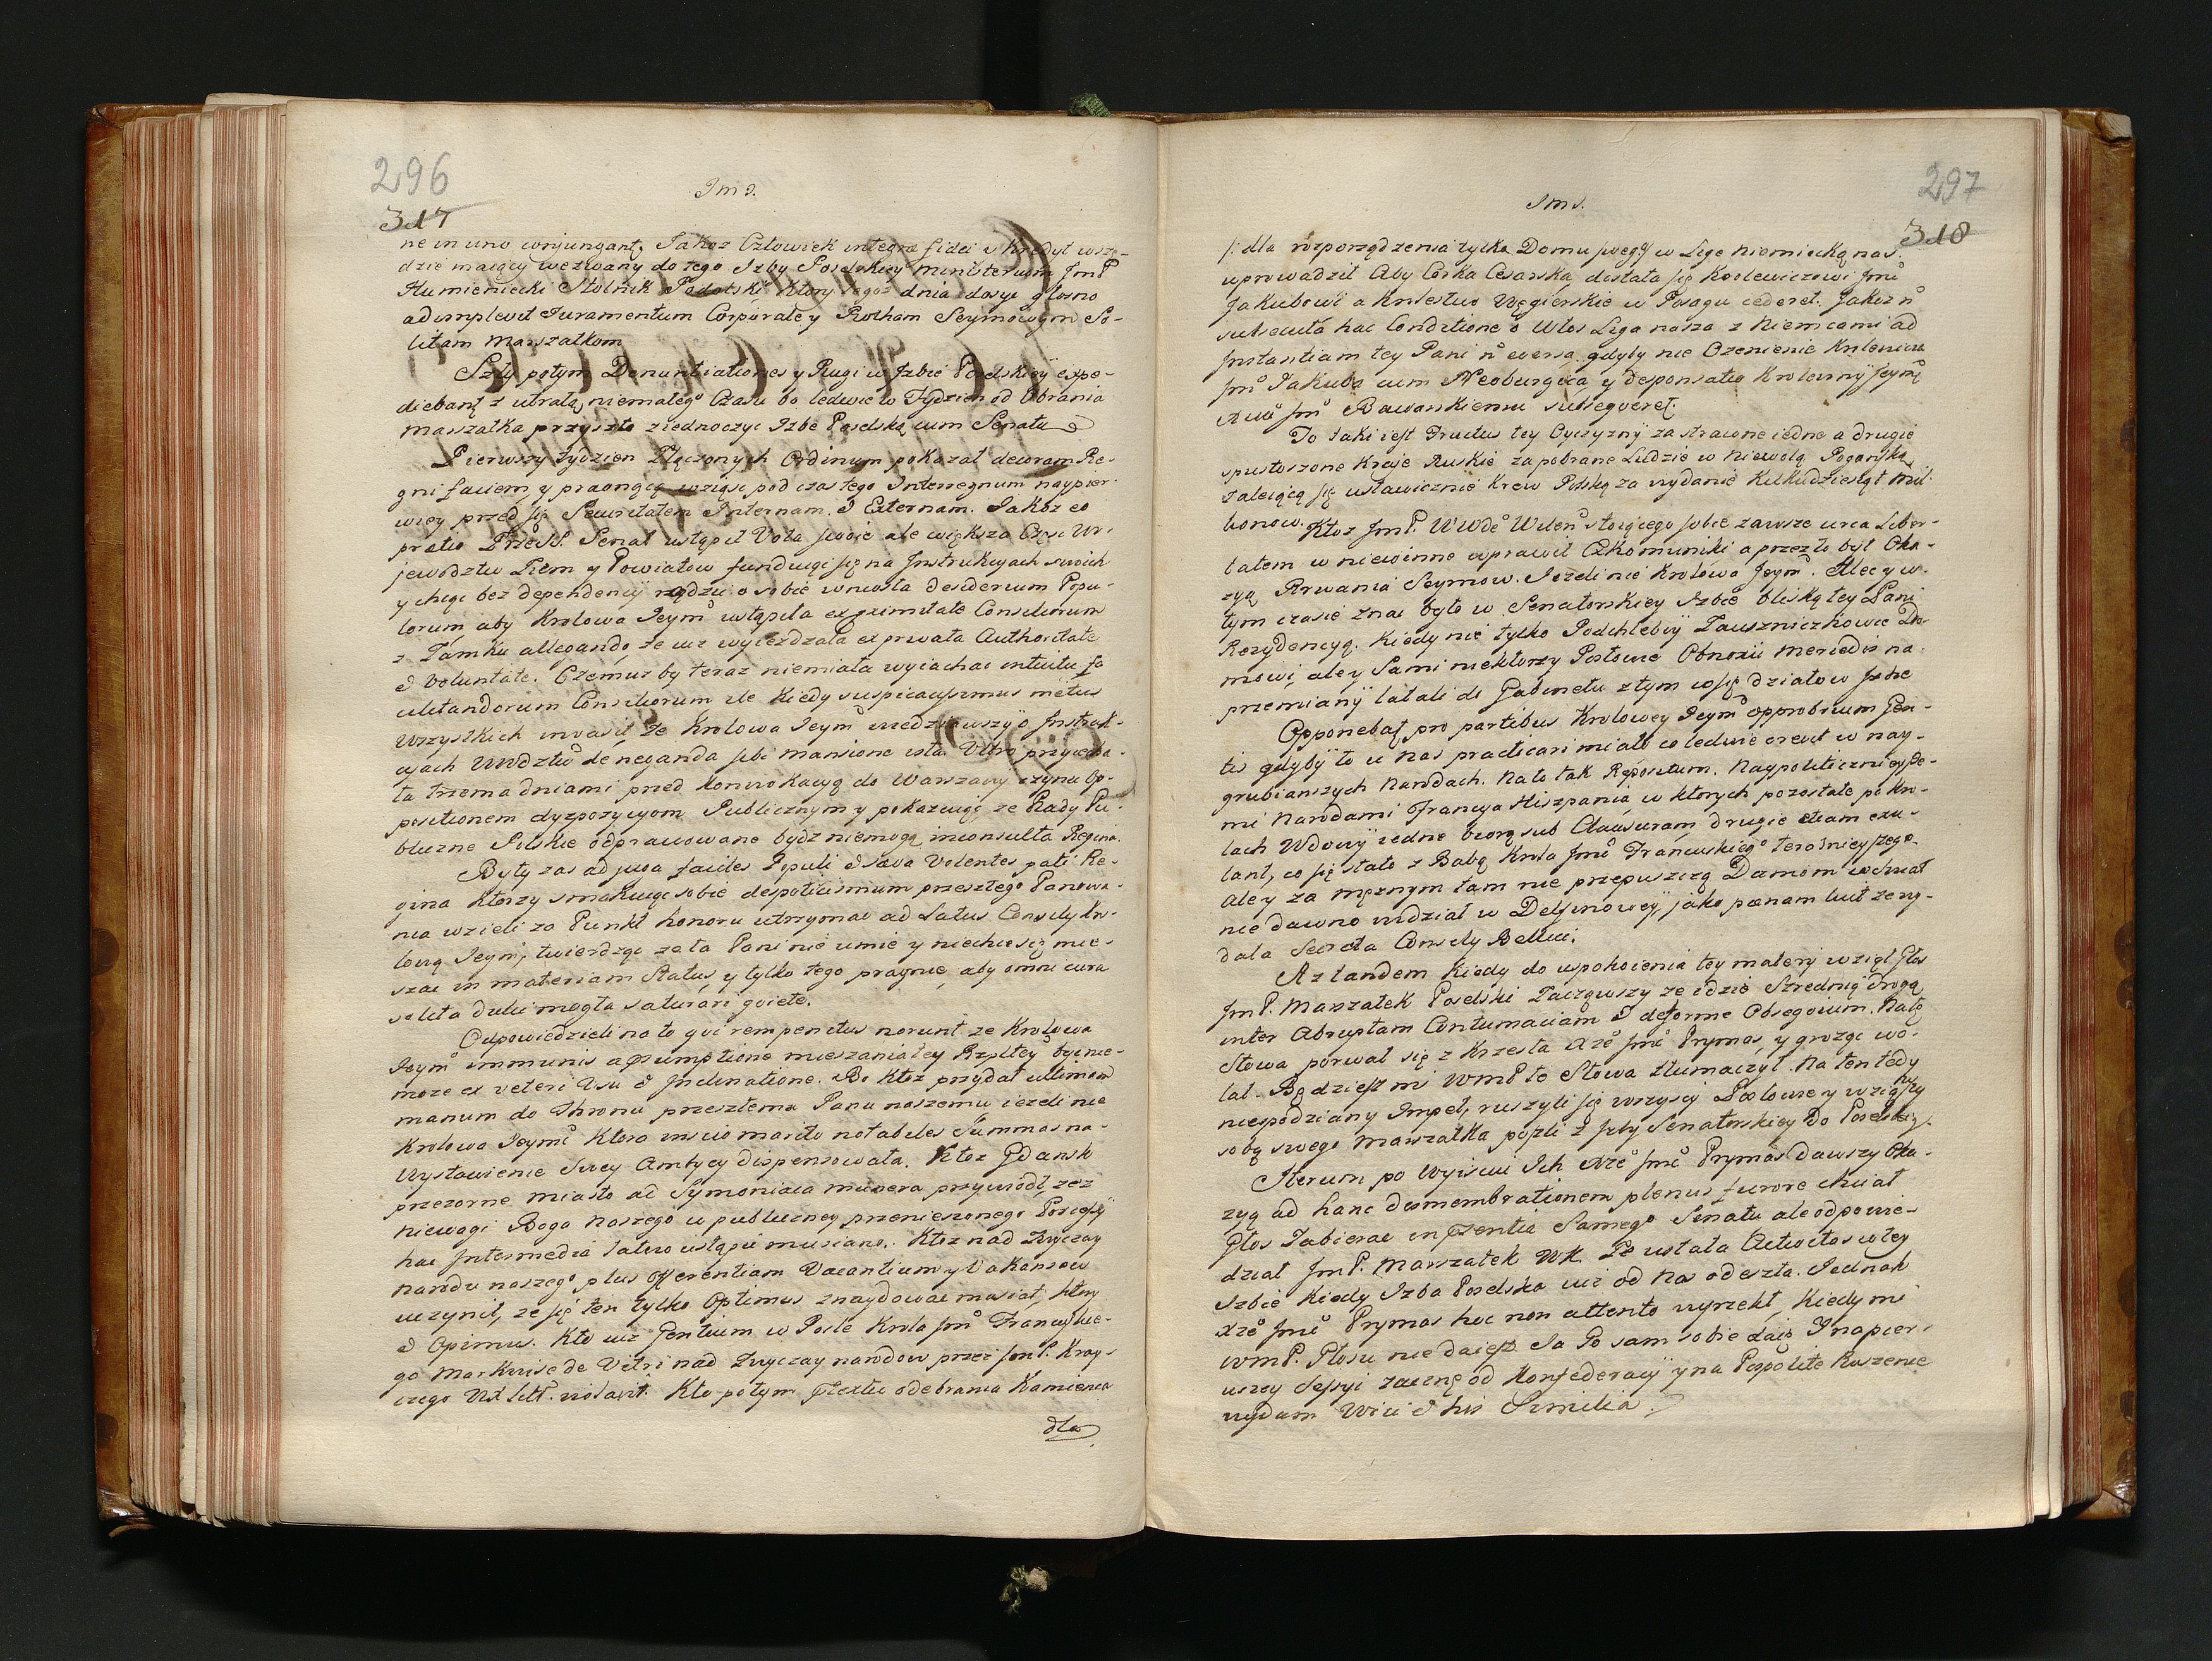 296
Jms.
317
ne in uno conjungant. Jakoż Człowiek integræ fidei i kredyt wszę-
dzie maiący wezwany do tego Izby Poselskiey ministerium JmP
Humieniecki Stolnik Podolski, ktory tegoż dnia dosyc głosno
adimplevit Juramentum Corporale y Rotham Seymowym So-
litam Marszałkom
Szły potym Denuntiationes y Rugi w Izbie Poselskiey expe-
diebant z utratą niemałego Czasu bo ledwie w Tydzień od Obrania
Marszałka przyszło ziednoczyc Izbę Poselską cum Senatu
Pierwszy tydzien Złączonych Ordinum pokazał decoram Re-
gni faciem, y pragnącą wziąsc pod czas tego Interregnum naypier-
wiey przed się Securitatem Internam & Externam. Jakoż eo
pratio Senat ustąpił Vota swoie ale większa Częsc Wo-
jewodztw Ziem y Powiatow fundując się na Instrukcyach swoich
y chcąc bez dependencij rządzic o sobie wniosła desiderium Popu-
lorum aby Krolowa Jeym ustąpiła ex proximitate Consiliorum
z Zamku allegando, że iuz wyieżdzała ex privata Authoritate
& voluntate. Czemuz by teraz niemiała wyiachac intuitu fa
cilitandorum Consiliorum, ale kiedy suspicacissimus metus
wszystkich invasit, że Krolowa Jeym wiedziawszy o Instruk-
cyach Wwdztw de neganda sibi mansione ista Ultro przyiecha-
ła trzema dniami przed Konwokacyą do Warszawy czyni Op-
positionem dyspozycyom Publicznym y pokazuie, że Rady Pu-
bliczne Polskie odprawowane bydz niemogą inconsulta Regina.
Były zas ad juga faciles Populi & sava Volentes pati Re-
gina ktorzy smakuiąc sobie despoticismum przeszłego Panowa-
nia wzieli za Punkt honoru utrzymac ad Latus Consily Kro-
lową Jeym, twierdząc ze ta Pani nie umie y niechce się mie-
szac in materiam Status, y tylko tego pragnie, aby omni cura
soluta dulci mogła saturari quiete.
Odpowiedzieli na to qui rem penitus norunt ze Krolowa
Jeym immunis a præsumptione mieszania tey Rzpltey byc nie-
moze ex veteri Usu & Inclinatione. Bo ktoż przydał ultimam
manum do Thronu przeszłemu Panu naszemu ieżeli nie
Krolowa Jeym ktora inscio marito notabiles Summas na
Wystawienie Swey Ambycy dispensowała. Ktoz Gdansk
przezorne miasto ad Symoniaca munera przywiodł, zez
niewagi Boga naszego w publiczney przenieszonego Porcessyi
hac Intermedia łatwo ustąpic musiano. Ktoz nad Zwyczay
narodu naszego plus offerentiam Vacantium y Vakansow
uczynił, że się ten tylko Optimus znaydowac musiał, ktory
& Opimus. Kto iuz Gentium w Posle Krola Jm Francuskie-
go Markwise de Vitri nad Zwyczay narodow przez JmP. Kray-
czego WX Litt. violavit. Kto potym prætextu odebrania Kamienca
dla
297
Jms.
318
/: dla rozporządzenia tylko Domu swego :/ w Lige niemiecką nas
wprowadził Aby Corka Cesarska dostała się Krolewiczowi Jm
Jakubowi a Krolestwo Węgierskie w Posagu cederet. Jakoż n
subsecuta hac Conditione o Włos Liga nasza z Niemcami ad
Instantiam tey Pani n eversa gdyby nie Ozenienie Krolewica
Jm Jakuba cum Neoburgica y desponsatio Krolewny Jeym
Jm Bawarskiemu subsequeret.
To taki iest Fructus tey Oyczyzny za stracone iedne a drugie
spustoszone Kraje Ruskie za pobrane Ludzie w Niewolą Pogańską
zaleiącą się ustawicznie Krew Polską za wydanie Kilkudziesiąt mil-
lionow. Ktoz JmP. WWde Wilen stoiącego sobie zawsze circa Liber-
tatem w niewinne wprawił Exkomuniki a przez to był Oka-
zyą Rwania Seymow. Jezeli nie Krolowa Jeym. Alec y w
tym czasie znac było w Senatorskiey Izbie bliską tey Pani
Rezydencyą. Kiedy nie tylko Podchlebcy Zausznickowie Do-
mowi, ale y Sami niektorzy Posłowie Obnoxii mercedis na
przemiany latali do Gabinetu z tym co się działo w Izbie
Opponebat pro partibus Krolowey Jeym opprobrium Gen-
tis gdyby to u nas practicari miało co ledwie crevit w nay-
grubianszych Narodach. Na to tak Repositum. Naypolitycznieysze-
mi Narodami Francya Hiszpania, w ktorych pozostałe po Kro-
lach Wdowy iedne biorą sub Clausuram drugie etiam exu-
lant, co się stało z Babą Krola Jm Francuskiego teraźnieyszego.
ale y za mężnym tam nie przepuszczą Damom wszak
nie dawno widział w Delfinowey, jako pænam luit ze wy-
dała Secreta Consily Bellici.
Az tandem kiedy do uspokoienia tey matery wziął głos
JmP. Marszałek Poselski Zacząwszy ze idzie Szrednią drogą
inter Abruptam Contumaciam & deforme Obsequium. Na tę
Słowa porwał się z Krzesła Xże Jm Prymas, y grożąc wo-
łał. Będziesz mi WmP te Słowa tłumaczył. Na ten tedy
niespodziany Impet, ruszyli się wszyscy Posłowie y wziąwszy
sobą swego Marszałka poszli z Izby Senatorskiey Do Poselskiey.
Iterum po Wyisciu Ich Xże Jm Prymas dawszy Oka-
zyą ad hanc dismembrationem plenus furore chciał
Głos Zabierac in præsentia Samego Senatu ale odpowie-
dział JmP. Marszałek WK. Ze ustała Activitas w tey
Izbie kiedy Izba Poselska iuż od Nas odeszła. Jednak
Xże Jm Prymas hoc non attento wyrzekł, Kiedy mi
WmP. Głosu nie daiesz. Ja Go sam sobie daię I na pier-
wszey Sessyi zacznę od Konfederacij y na Pospolite Ruszenie
wydam Wici & his Similia.